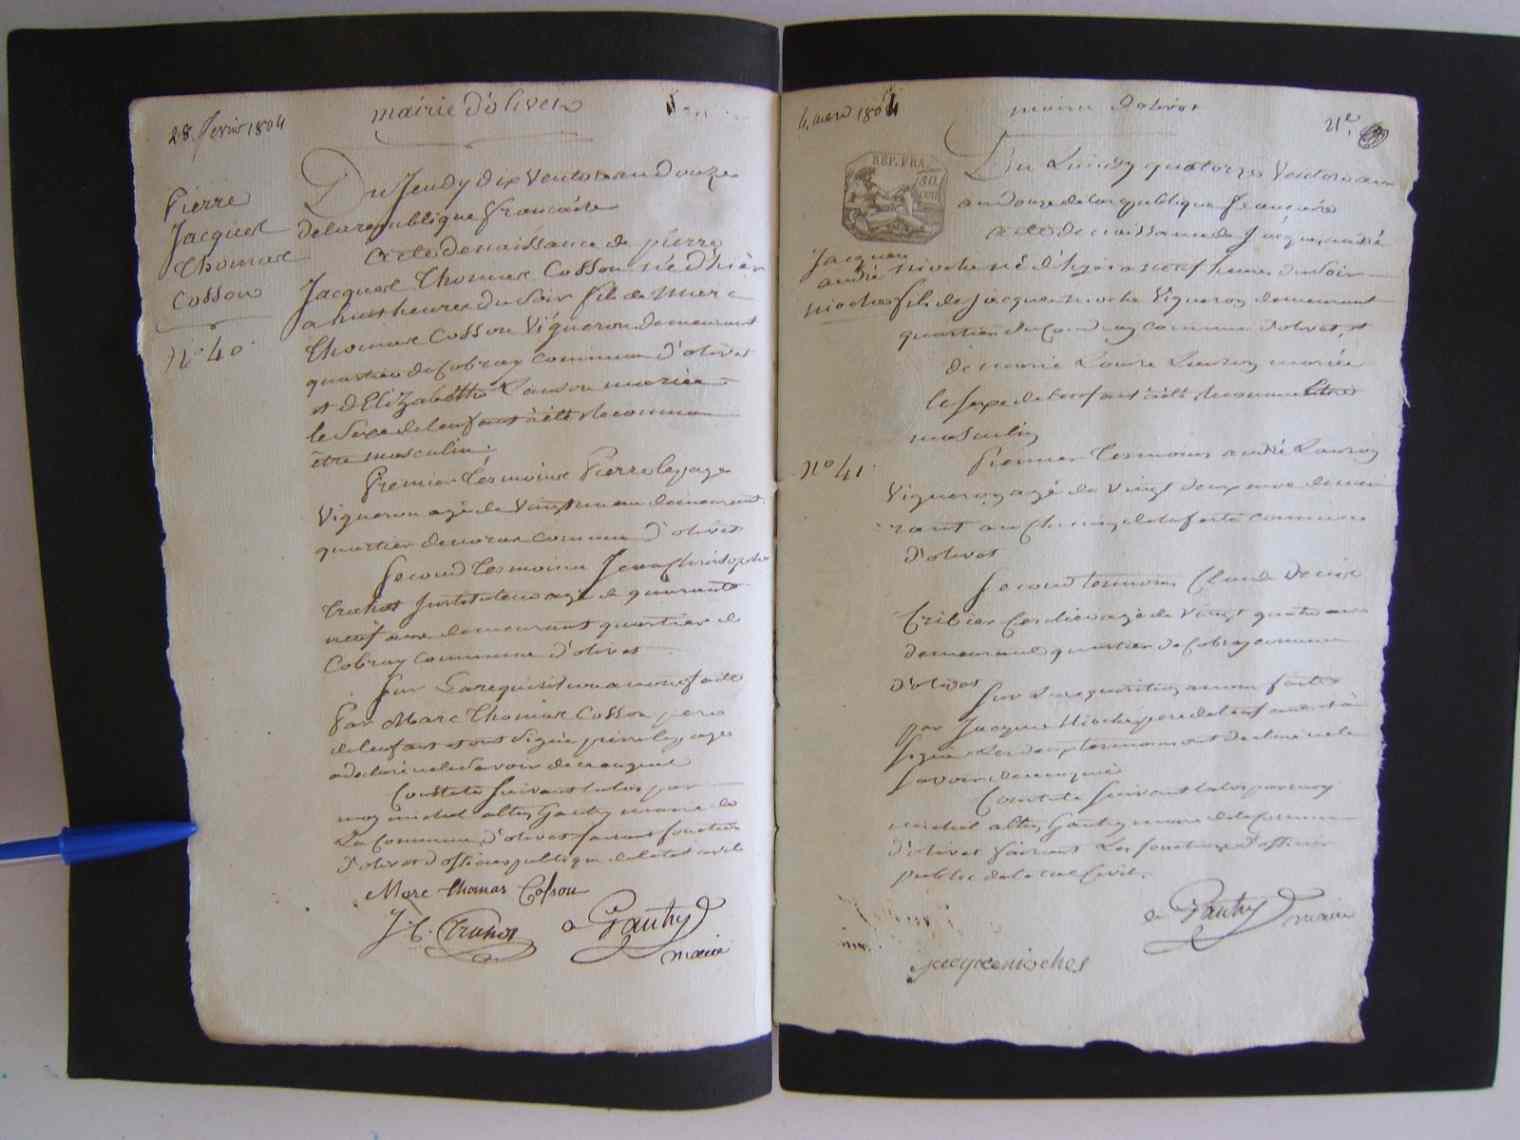 28 fevrier 1804
mairie d'olivet
Pierre
Jacques
Thomas
Cosson
n° 40
Du Jeudy dix Ventose an Douze
de la republique francaise
Acte de naissance de pierre
Jacques Thomas Cosson né d'hier
a huit heures du soir fils de Marc
thomas Cosson Vigneron demeurant
quartier de Cobray commune d'olivet
et d'Elizabeth Landron mariée
le sexe de l'enfant à été Reconnu
être masculin.
Premier tesmoins Pierre lepage
Vigneron agé de Vingt un an demeurant
quartier de commune d'olivet
Second tesmoins Jean christophe
truhot Instituteur agé de quarante
neuf ans demeurant quartier de
Cobray commune d'olivet
Sur La requisition a nous faite
Par Marc Thomas Cosson pere
de l'enfant et ont signé pierre lepage
a declaré ne le savoir de ce enquis
Constaté Suivant la loi par
moy michel altin Gauthy maire de
La Commune d'olivet faisant fonction
d'officier publique de l'etat civil
Marc thomas Cosson
J C. Truhot
a Gauthy
maire
4 mars 1804
mairie d'olivet
21e.
REP. FRA.
Du Lundy quatorze Ventose
an douze de la republique francaise
Acte de naissance de Jacque andré
Jacques
andré
nioche
nioche né d'hyer a neuf heures du soir
fils de Jacque nioche Vigneron demeurant
quartier du commune d'olivet, et
de marie Laure Lanson mariée
le sexe de l'enfant à été Reconnu être
masculin
n° 41.
Premier tesmoins andré Lanson
Vigneron agé de Vingt deux ans demeu
rant au Chemin de la ferté commune
d'olivet
Second tesmoins Claude Denis
Cribier agé de Vingt quatre ans
demeurant quartier de Cobray commune
d'olivet
Sur La requisition a nous faite
par Jacque Nioche pere de l'enfant et à
signé Les deux tesmoins ont declaré ne le
savoir de ce enquis
Constaté Suivant la loi par moy
michel altin Gauthy maire de la commune
d'olivet faisant Les fonctions d'officier
public de l'etat Civil.
a Gauthy
maire
jacque nioches